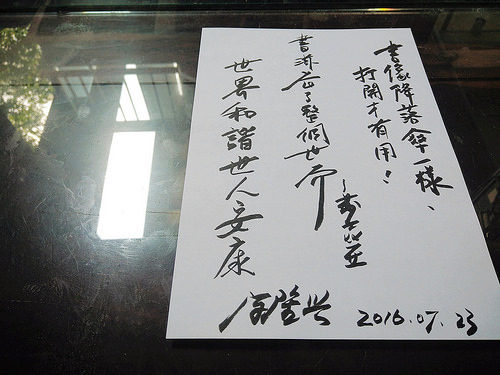 書像降落傘一樣、
打開才有用！
書濟
了整個世界
世界和諧世人安康
2016.07.23